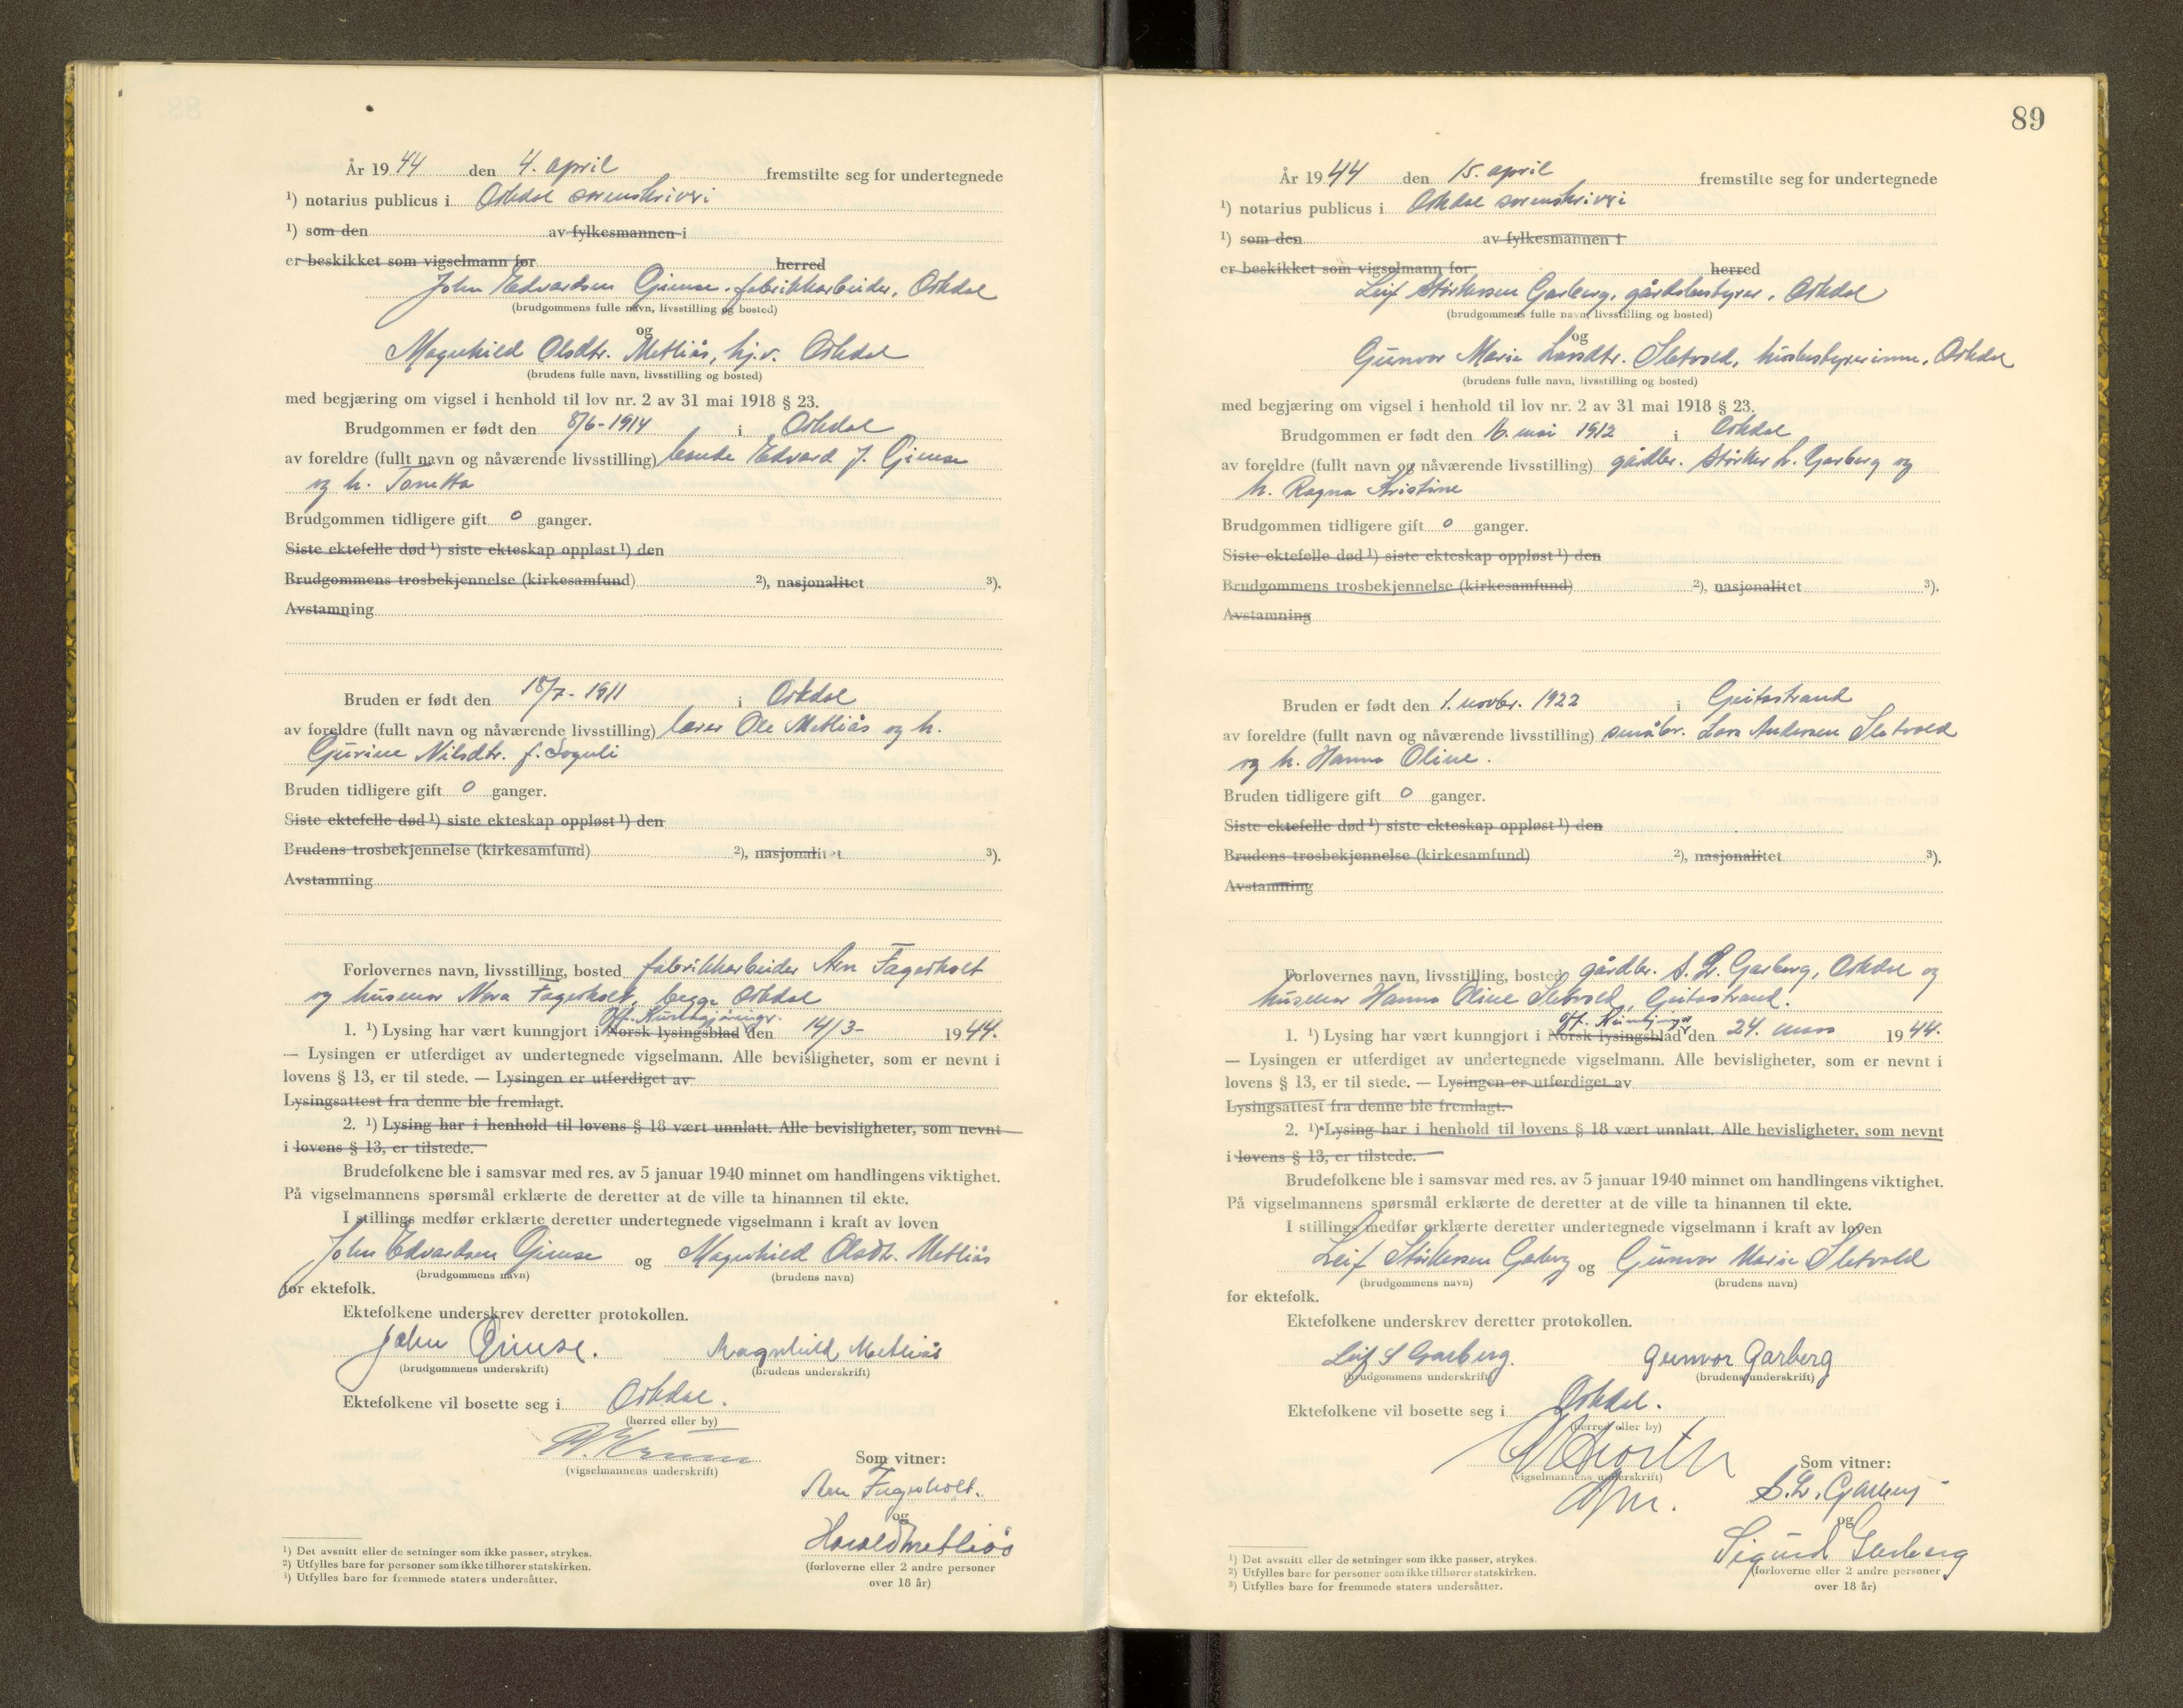 År 19 44 den 4. april fremstilte seg for undertegnede
¹) notarius publicus i Orkdal sorenskriveri
¹) som den av fylkesmannen i
er beskikket som vigselmann for herred
John Edvardsen Gimse, fabrikkarbeider, Orkdal
(brudgommens fulle navn, livsstilling og bosted)
og
Magnhild Olsdtr. Metliås, hj.v. Orkdal
(brudens fulle navn, livsstilling og bosted)
med begjæring om vigsel i henhold til lov nr. 2 av 31 mai 1918 § 23.
Brudgommen er født den 8/6-1914 i Orkdal
av foreldre (fullt navn og nåværende livsstilling) bonde Edvard J. Gimse
og h. Tonetta
Brudgommen tidligere gift 0 ganger.
Siste ektefelle død ¹) siste ekteskap oppløst ¹) den
Brudgommens trosbekjennelse (kirkesamfund) ²), nasjonalitet ³).
Avstamning
Bruden er født den 18/7-1911 i Orkdal
av foreldre (fullt navn og nåværende livsstilling) lærer Ole Metliås og h.
Gurine Nilsdtr. f. Soguli
Bruden tidligere gift 0 ganger.
Siste ektefelle død ¹) siste ekteskap oppløst ¹) den
Brudens trosbekjennelse (kirkesamfund) ²), nasjonalitet ³).
Avstamning
Forlovernes navn, livsstilling, bosted fabrikkarbeider Arn Fagerholt
og husmor Nora Fagerholt, begge Orkdal
Off. Kunngjøringr.
1. ¹) Lysing har vært kunngjort i Norsk lysingsblad den 14/3- 1944.
— Lysingen er utferdiget av undertegnede vigselmann. Alle bevisligheter, som er nevnt i
lovens § 13, er til stede. — Lysingen er utferdiget av
Lysingsattest fra denne ble fremlagt.
2. ¹) Lysing har i henhold til lovens § 18 vært unnlatt. Alle bevisligheter, som nevnt
i lovens § 13, er tilstede.
Brudefolkene ble i samsvar med res. av 5 januar 1940 minnet om handlingens viktighet.
På vigselmannens spørsmål erklærte de deretter at de ville ta hinannen til ekte.
I stillings medfør erklærte deretter undertegnede vigselmann i kraft av loven
John Edvardsen Gimse og Magnhild Olsdtr. Metliås
(brudgommens navn) (brudens navn)
for ektefolk.
Ektefolkene underskrev deretter protokollen.
John Gimse. Magnhild Metliås
(brudgommens underskrift) (brudens underskrift)
Ektefolkene vil bosette seg i Orkdal.
(herred eller by)
(vigselmannens underskrift)
Som vitner:
Arn Fagerholt.
og
Harald Metliås
(forloverne eller 2 andre personer
over 18 år)
¹) Det avsnitt eller de setninger som ikke passer, strykes.
²) Utfylles bare for personer som ikke tilhører statskirken.
³) Utfylles bare for fremmede staters undersåtter.
89
År 1944 den 15. april fremstilte seg for undertegnede
¹) notarius publicus i Orkdal sorenskriveri
¹) som den av fylkesmannen i
er beskikket som vigselmann for herred
Leif Størkersen Garberg, gårdsbestyrer, Orkdal
(brudgommens fulle navn, livsstilling og bosted)
og
Gunvor Marie Larsdtr. Sletvold, husbestyrerinne, Orkdal
(brudens fulle navn, livsstilling og bosted)
med begjæring om vigsel i henhold til lov nr. 2 av 31 mai 1918 § 23.
Brudgommen er født den 16. mai 1912 i Orkdal
av foreldre (fullt navn og nåværende livsstilling) gårdbr. Størker L. Garberg og
h. Ragna Kristine
Brudgommen tidligere gift 0 ganger.
Siste ektefelle død ¹) siste ekteskap oppløst ¹) den
Brudgommens trosbekjennelse (kirkesamfund) ²), nasjonalitet ³).
Avstamning
Bruden er født den 1. novbr. 1922 i Geitastrand
av foreldre (fullt navn og nåværende livsstilling) småbr. Lars Andersen Sletvold
og h. Hanna Oline.
Bruden tidligere gift 0 ganger.
Siste ektefelle død ¹) siste ekteskap oppløst ¹) den
Brudens trosbekjennelse (kirkesamfund) ²), nasjonalitet ³).
Avstamning
Forlovernes navn, livsstilling, bosted gårdbr. S. L. Garberg, Orkdal og
husmor Hanna Oline Sletvold, Geitastrand.
off. Kunngjingr
1. ¹) Lysing har vært kunngjort i Norsk lysingsblad den 24. mars 1944.
— Lysingen er utferdiget av undertegnede vigselmann. Alle bevisligheter, som er nevnt i
lovens § 13, er til stede. — Lysingen er utferdiget av
Lysingsattest fra denne ble fremlagt.
2. ¹) Lysing har i henhold til lovens § 18 vært unnlatt. Alle bevisligheter, som nevnt
i lovens § 13, er tilstede.
Brudefolkene ble i samsvar med res. av 5 januar 1940 minnet om handlingens viktighet.
På vigselmannens spørsmål erklærte de deretter at de ville ta hinannen til ekte.
I stillings medfør erklærte deretter undertegnede vigselmann i kraft av loven
Leif Størkersen Garberg og Gunvor Marie Sletvold
(brudgommens navn) (brudens navn)
for ektefolk.
Ektefolkene underskrev deretter protokollen.
Leif S Garberg. Gunvor Garberg
(brudgommens underskrift) (brudens underskrift)
Ektefolkene vil bosette seg i Orkdal.
(herred eller by)
(vigselmannens underskrift)
Som vitner:
S. L. Garberg
og
Sigurd Garberg
(forloverne eller 2 andre personer
over 18 år)
¹) Det avsnitt eller de setninger som ikke passer, strykes.
²) Utfylles bare for personer som ikke tilhører statskirken.
³) Utfylles bare for fremmede staters undersåtter.